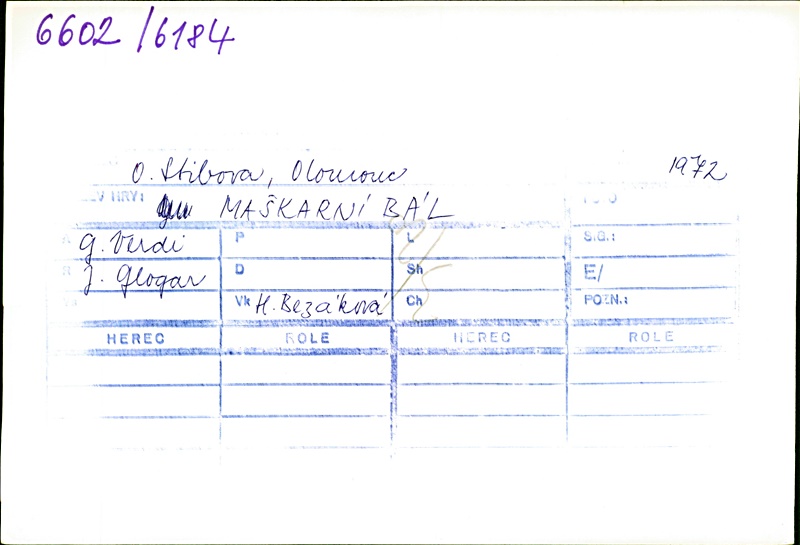 6602/6184
O. Stibora, Olomouc 1972
HRY: MAŠKARNÍ BÁL
G. Verdi P L S.G.:
R J. Glogar D Sh E/
Vk H. Bezáková Ch POZN.:
HEREC ROLE HEREC ROLE